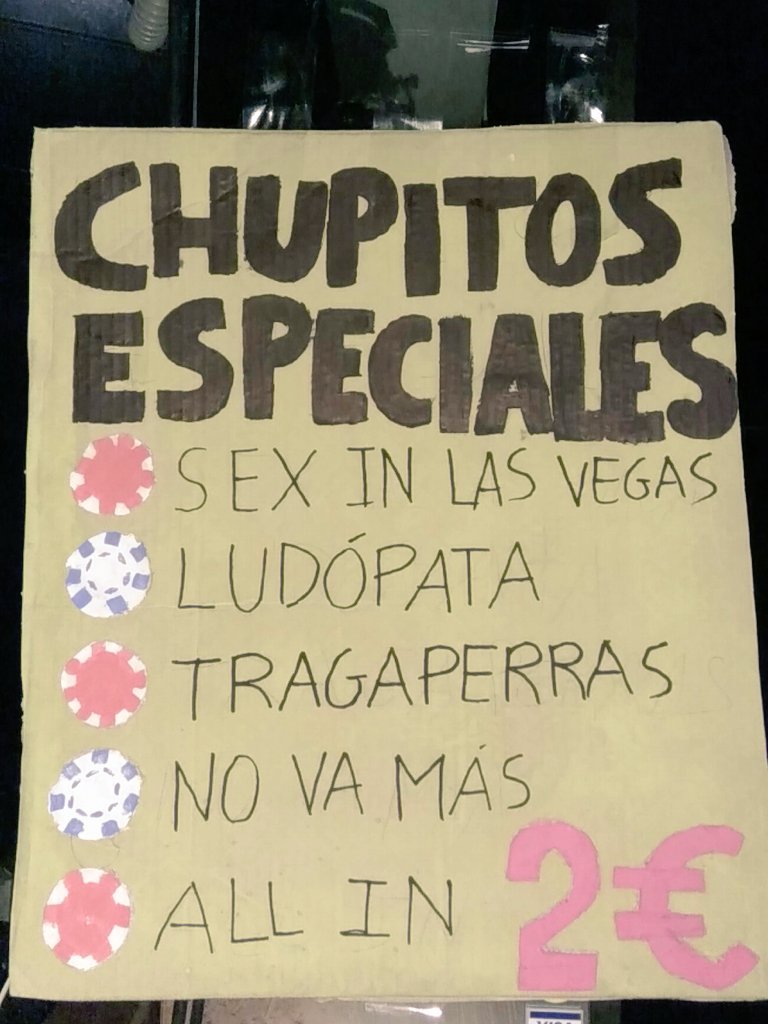 CHUPITOS
ESPECIALES
SEX IN LAS VEGAS
LUDÓPATA
TRAGAPERRAS
NO VA MÁS
ALL IN 2€
VISA